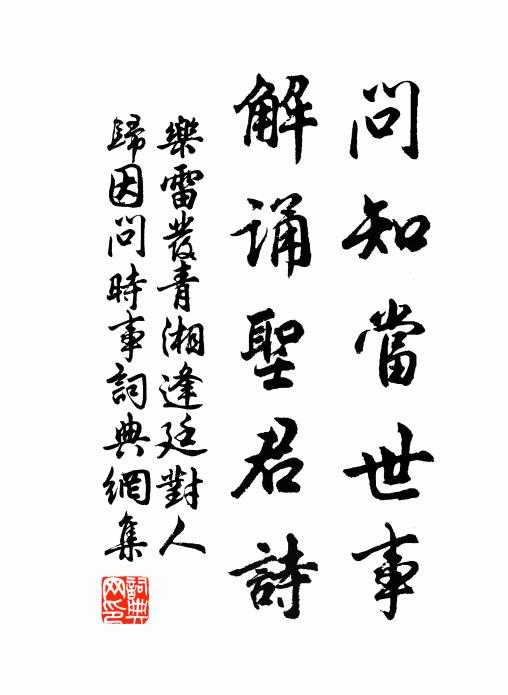 問知當世事
解誦聖君詩
樂雷發青湘逢廷對人
歸因問時事詞典網集
詞典網印